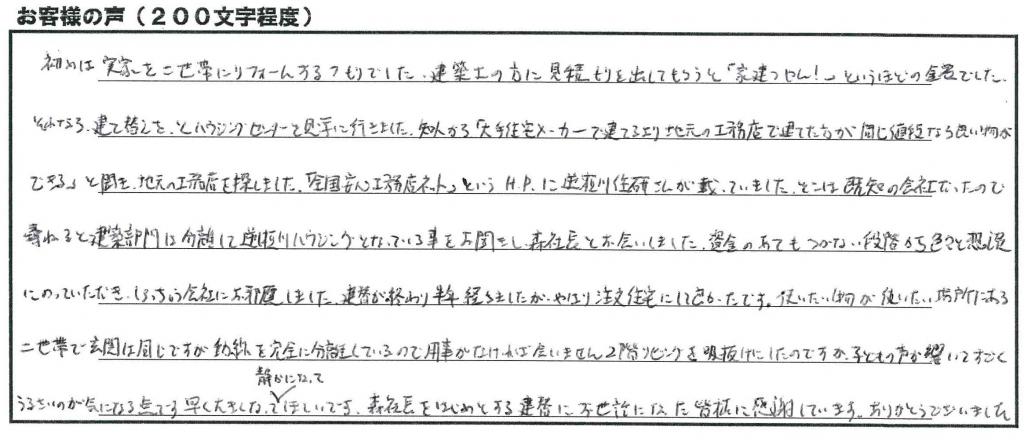 お客様の声（２００文字程度）
初めは実家を二世帯にリフォームするつもりでした。建築士の方に見積もりを出してもらうと「家建つやん！」というほどの金額でした。
それなら、建て替えを、とハウジングセンターを見学に行きました。知人から「大手住宅メーカーで建てるより地元の工務店で建てた方が同じ値段なら良い物が
できる」と聞き、地元の工務店を探しました。「全国安心工務店ネット」というH.P.に逆瀬川住研さんが載っていました。そこは既知の会社だったので
尋ねると建築部門は分離して逆瀬川ハウジングとなっている事をお聞きし森社長とお会いしました。資金のあてもつかない段階から色々と相談
にのっていただき、しょっちゅう会社にお邪魔しました。建替が終わり半年経ちましたが、やはり注文住宅にして良かったです。使いたい物が使いたい場所にある
二世帯で玄関は同じですが動線を完全に分離しているので用事がなければ会いません 2階リビングを吹抜けにしたのですが、子どもの声が響いてすごく
静かになって
うるさいのが気になる点です 早く大きくなってほしいです。森社長をはじめとする建替にお世話になった皆様に感謝しています。ありがとうございました